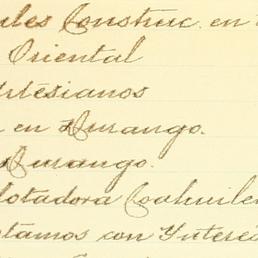 les Construc. en
Oriental
Artesianos
en Durango.
Durango.
lotadora Cahuile
tamos con Interés